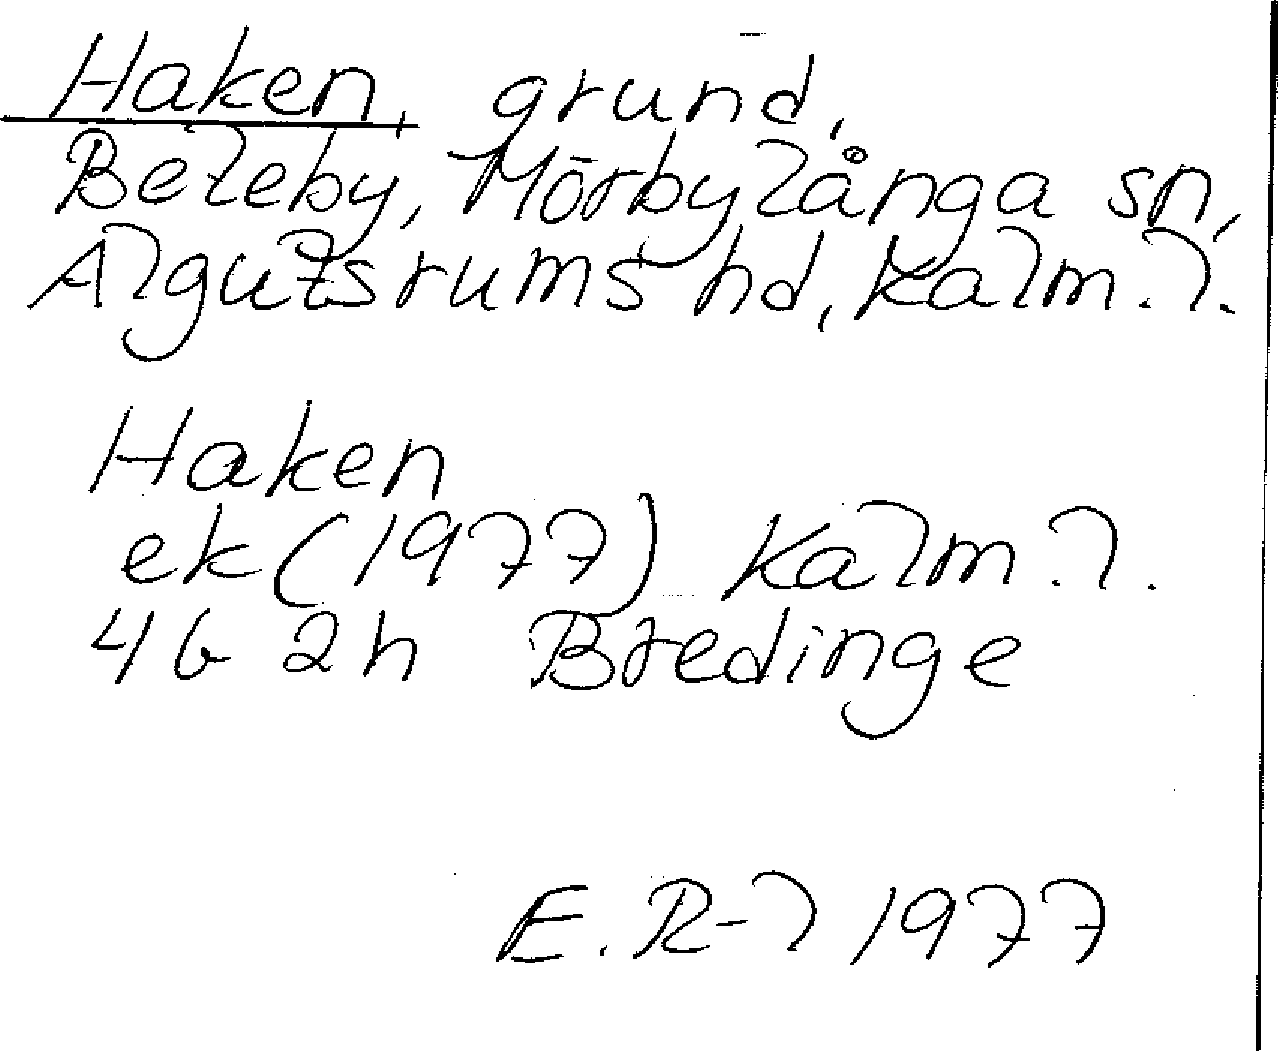 Haken, grund,
Beteby, Mörbylånga sn,
Algutsrums hd, Kalm. l.
Haken
ek (1977) Kalm. l.
4 G 2h Bredinge
E. R-l 1977